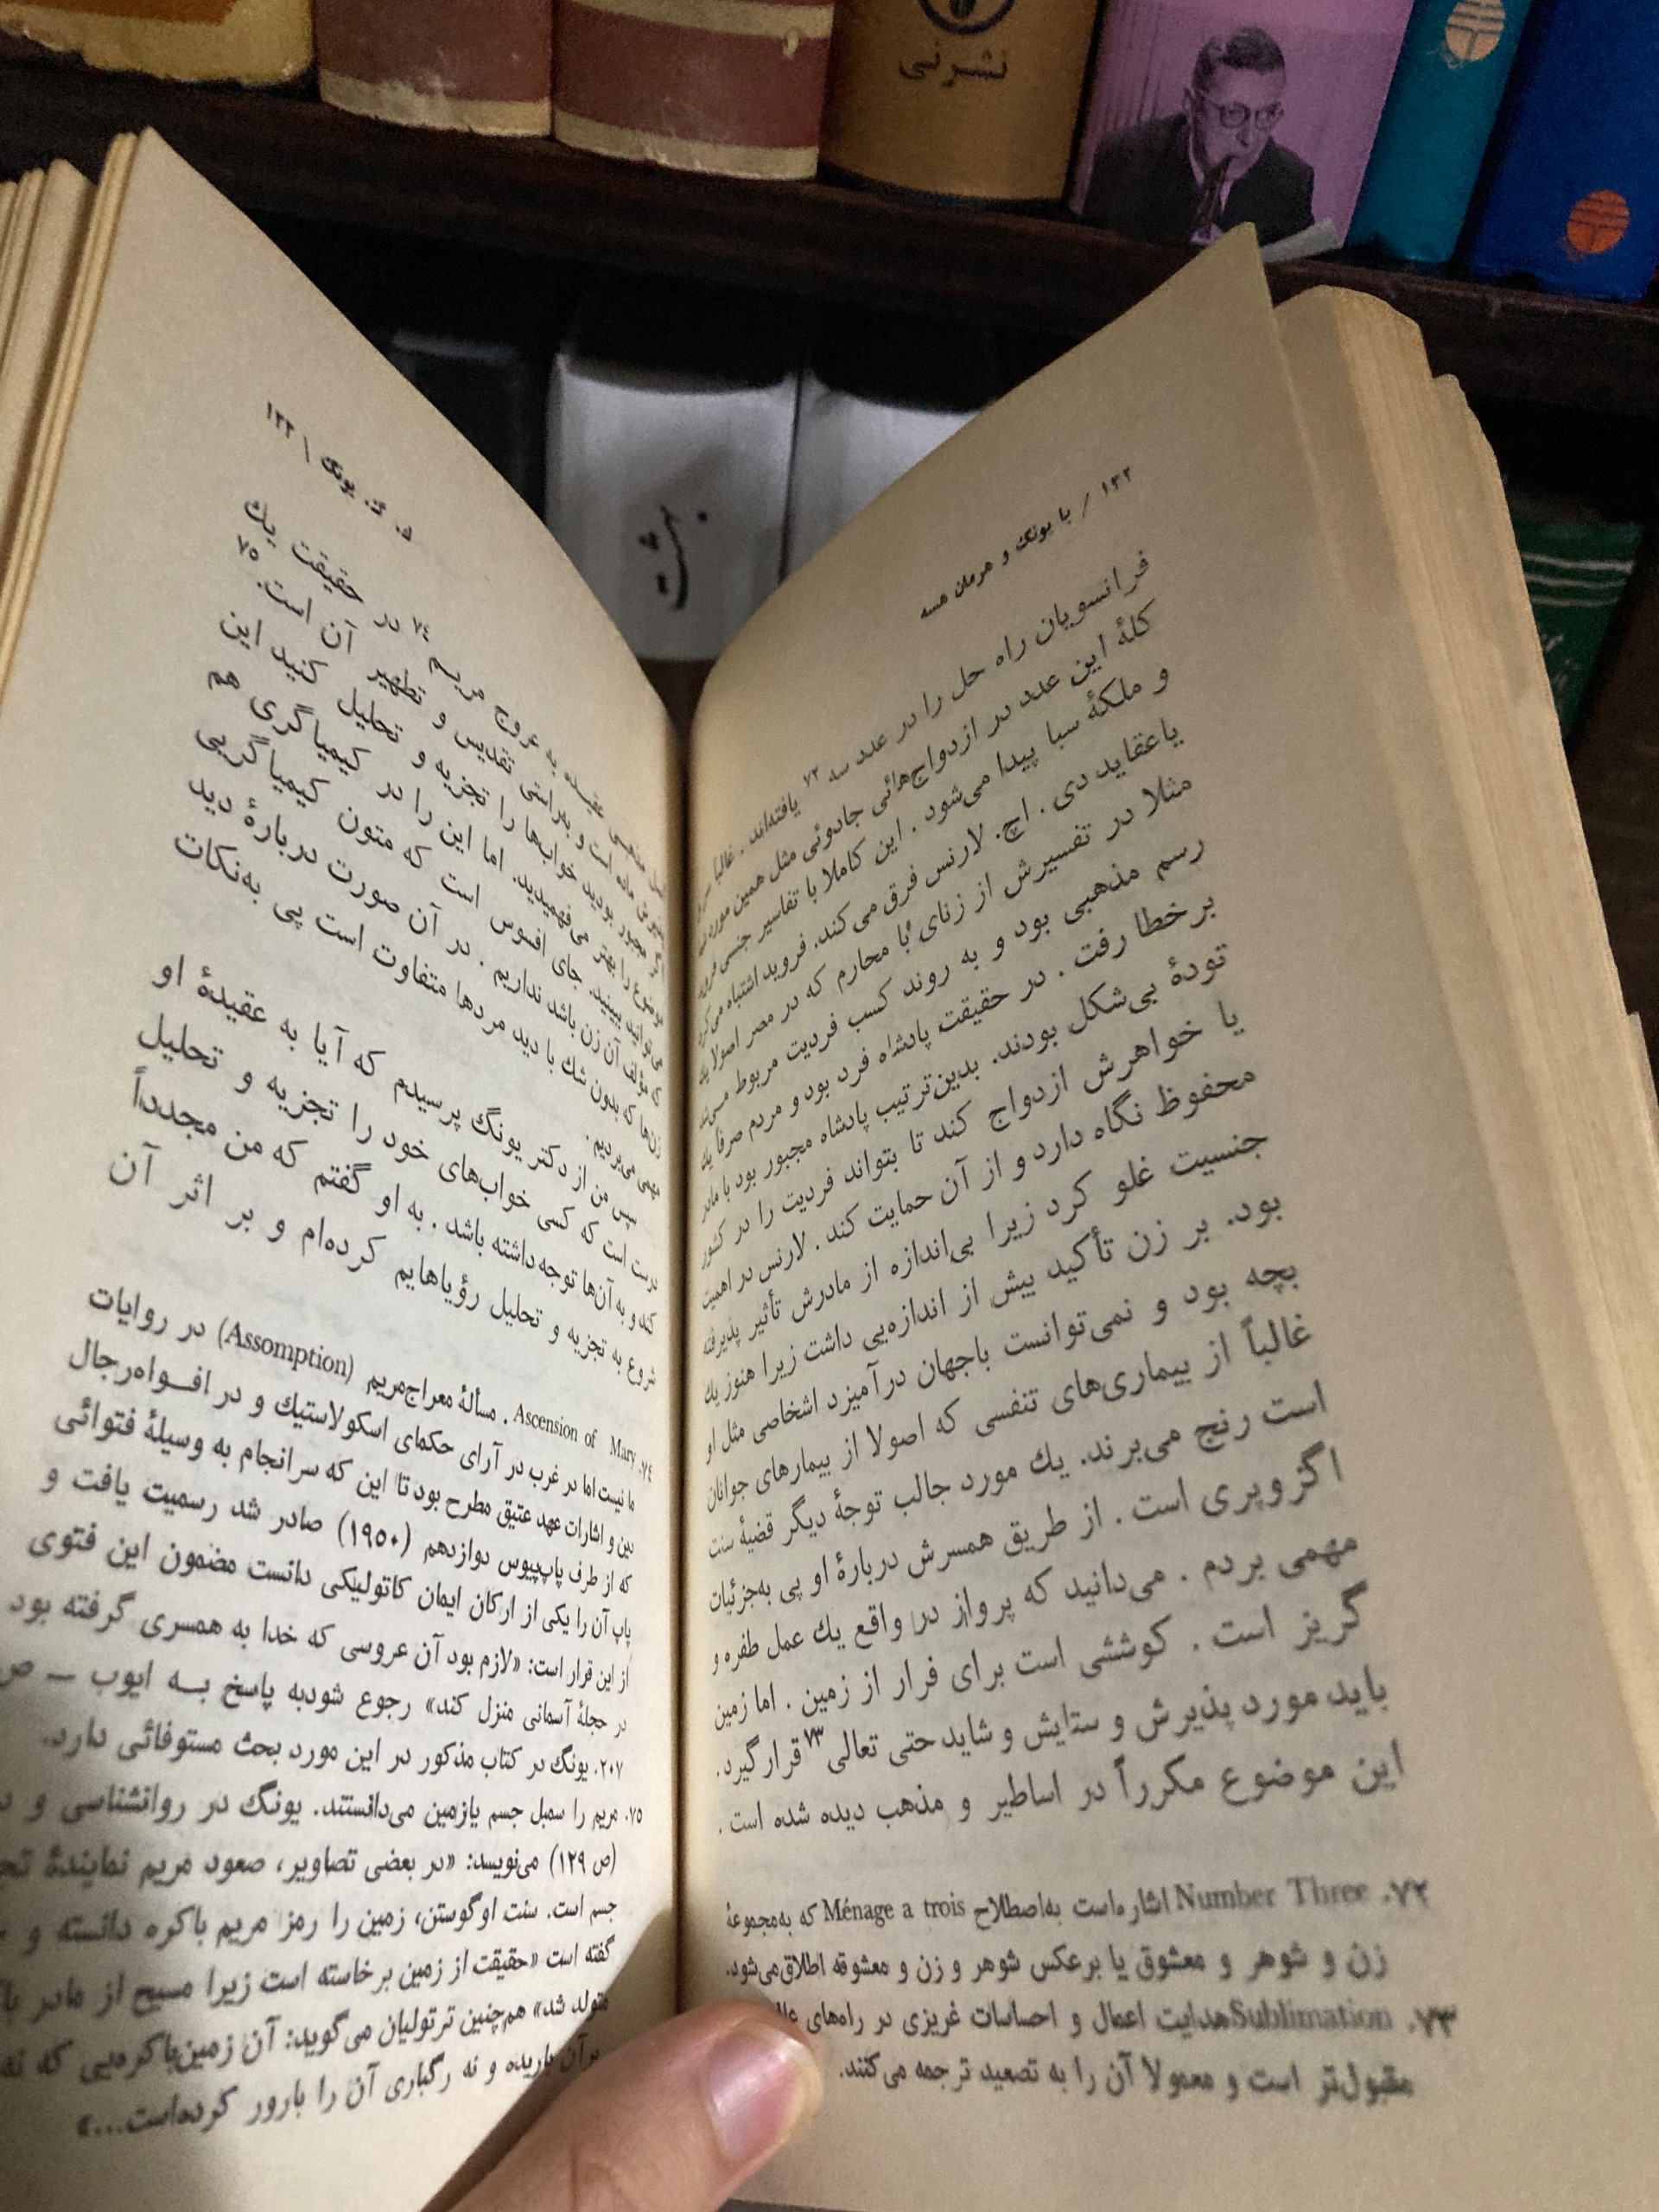 نشرنی
بهشت
۱۳۲ / با یونگ و هرمان هسه
فرانسویان راه حل را در عدد سه ۷۲ یافته‌اند . غالباً
کلهٔ این عدد در ازدواج‌هائی جادوئی مثل همین مورد
و ملکهٔ سبا پیدا می‌شود . این کاملا با تفاسیر جنسی
یاعقاید دی . اچ. لارنس فرق می‌کند. فروید اشتباه می
مثلا در تفسیرش از زنای با محارم که در مصر اصولا یک
رسم مذهبی بود و به روند کسب فردیت مربوط
برخطا رفت . در حقیقت پادشاه فرد بود و مردم صرفاً یک
تودهٔ بی‌شکل بودند. بدین‌ترتیب پادشاه مجبور بود با مادر
یا خواهرش ازدواج کند تا بتواند فردیت را در کشور
محفوظ نگاه دارد و از آن حمایت کند . لارنس در اهمیت
جنسیت غلو کرد زیرا بی‌اندازه از مادرش تأثیر پذیرفته
بود. بر زن تأکید بیش از اندازه‌یی داشت زیرا هنوز یک
بچه بود و نمی‌توانست باجهان درآمیزد اشخاصی مثل او
غالباً از بیماری‌های تنفسی که اصولا از بیمارهای جوانان
است رنج می‌برند. یك مورد جالب توجهٔ دیگر قضیهٔ سنت
اگزوپری است . از طریق همسرش دربارهٔ او پی به‌جزئیات
مهمی بردم . می‌دانید که پرواز در واقع یك عمل طفره و
گریز است . کوششی است برای فرار از زمین . اما زمین
باید مورد پذیرش و ستایش و شاید حتی تعالی ۷۳ قرار گیرد.
این موضوع مکرراً در اساطیر و مذهب دیده شده است .
۷۲. Number Three اشاره‌است به‌اصطلاح Ménage a trois که به‌مجموعهٔ
زن و شوهر و معشوق یا برعکس شوهر و زن و معشوقه اطلاق می‌شود.
۷۳. Sublimation هدایت اعمال و احساسات غریزی در راه‌های
مقبول‌تر است و معمولا آن را به تصعید ترجمه می‌کنند.
یونگ / ۱۳۳
عقیده به عروج مریم ۷۴ در حقیقت یك
است و براستی تقدیس و تطهیر آن است. ۷۵
مجبور بودید خواب‌ها را تجزیه و تحلیل کنید این
موضوع را بهتر می‌فهمیدید. اما این را در کیمیاگری هم
می‌توانید ببینید. جای افسوس است که متون کیمیاگریی
که مؤلف آن زن باشد نداریم . در آن صورت دربارهٔ دید
زن‌ها که بدون شك با دید مردها متفاوت است پی به‌نکات
مهمی می‌بردیم .
سپس من از دکتر یونگ پرسیدم که آیا به عقیدهٔ او
درست است که کسی خواب‌های خود را تجزیه و تحلیل
کند و به آن‌ها توجه داشته باشد . به او گفتم که من مجدداً
شروع به تجزیه و تحلیل رؤیاهایم کرده‌ام و بر اثر آن
۷۴. Ascension of Mary . مسألهٔ معراج‌مریم (Assomption) در روایات
ما نیست اما در غرب در آرای حکمای اسکولاستیك و در افواه‌رجال
دین و اشارات عهد عتیق مطرح بود تا این که سرانجام به وسیلهٔ فتوائی
که از طرف پاپ‌پیوس دوازدهم (۱۹۵۰) صادر شد رسمیت یافت و
پاپ آن را یکی از ارکان ایمان کاتولیکی دانست مضمون این فتوی
از این قرار است: «لازم بود آن عروسی که خدا به همسری گرفته بود
در حجلهٔ آسمانی منزل کند» رجوع شودبه پاسخ بـه ایوب ــ ص
۲۰۷. یونگ در کتاب مذکور در این مورد بحث مستوفائی دارد.
۷۵. مریم را سمبل جسم یازمین می‌دانستند. یونگ در روانشناسی و
(ص ۱۲۹) می‌نویسد: «در بعضی تصاویر، صعود مریم نمایندهٔ
جسم است. سنت اوگوستن، زمین را رمز مریم باکره دانسته و
گفته است «حقیقت از زمین برخاسته است زیرا مسیح از مادر
متولد شد» هم‌چنین ترتولیان می‌گوید: آن زمین‌باکره‌یی که نه
برآن باریده و نه رگباری آن را بارور کرده‌است...»